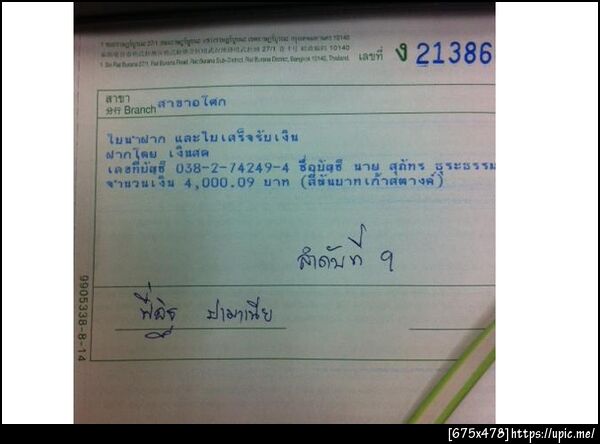 27/1 กรุงเทพมหานคร 10140
27/1 10140
1 Soi Rat Burana 27/1, Rat Burana Road, Rat Burana Sub-District, Rat Burana District, Bangkok 10140, Thailand.
เลขที่ ง 21386
สาขา
分行 Branch สาขาอโศก
ใบนำฝาก และใบเสร็จรับเงิน
ฝากโดย เงินสด
เลขที่บัญชี 038-2-74249-4 ชื่อบัญชี นาย สุภัทร ธุระธรรม
จำนวนเงิน 4,000.09 บาท (สี่พันบาทเก้าสตางค์)
ลำดับที่ 9
9905338-8-14
[675x478]https://upic.me/